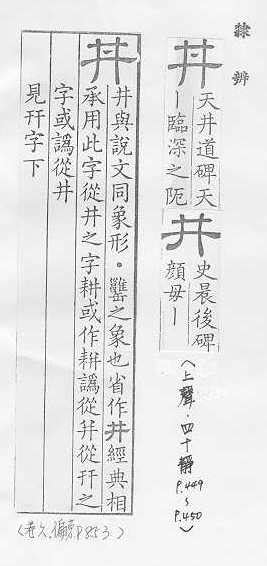 隸辨
丼 天井道碑天
丨臨深之阨
井 史晨後碑
顏母丨
(上聲.四十靜
P.449
~
P.450)
丼 丼與說文同象形.𦉥之象也省作井經典相
承用此字從井之字耕或作耕譌從幵從幵之
字或譌從井
見幵字下
(卷六,偏旁P.853.)